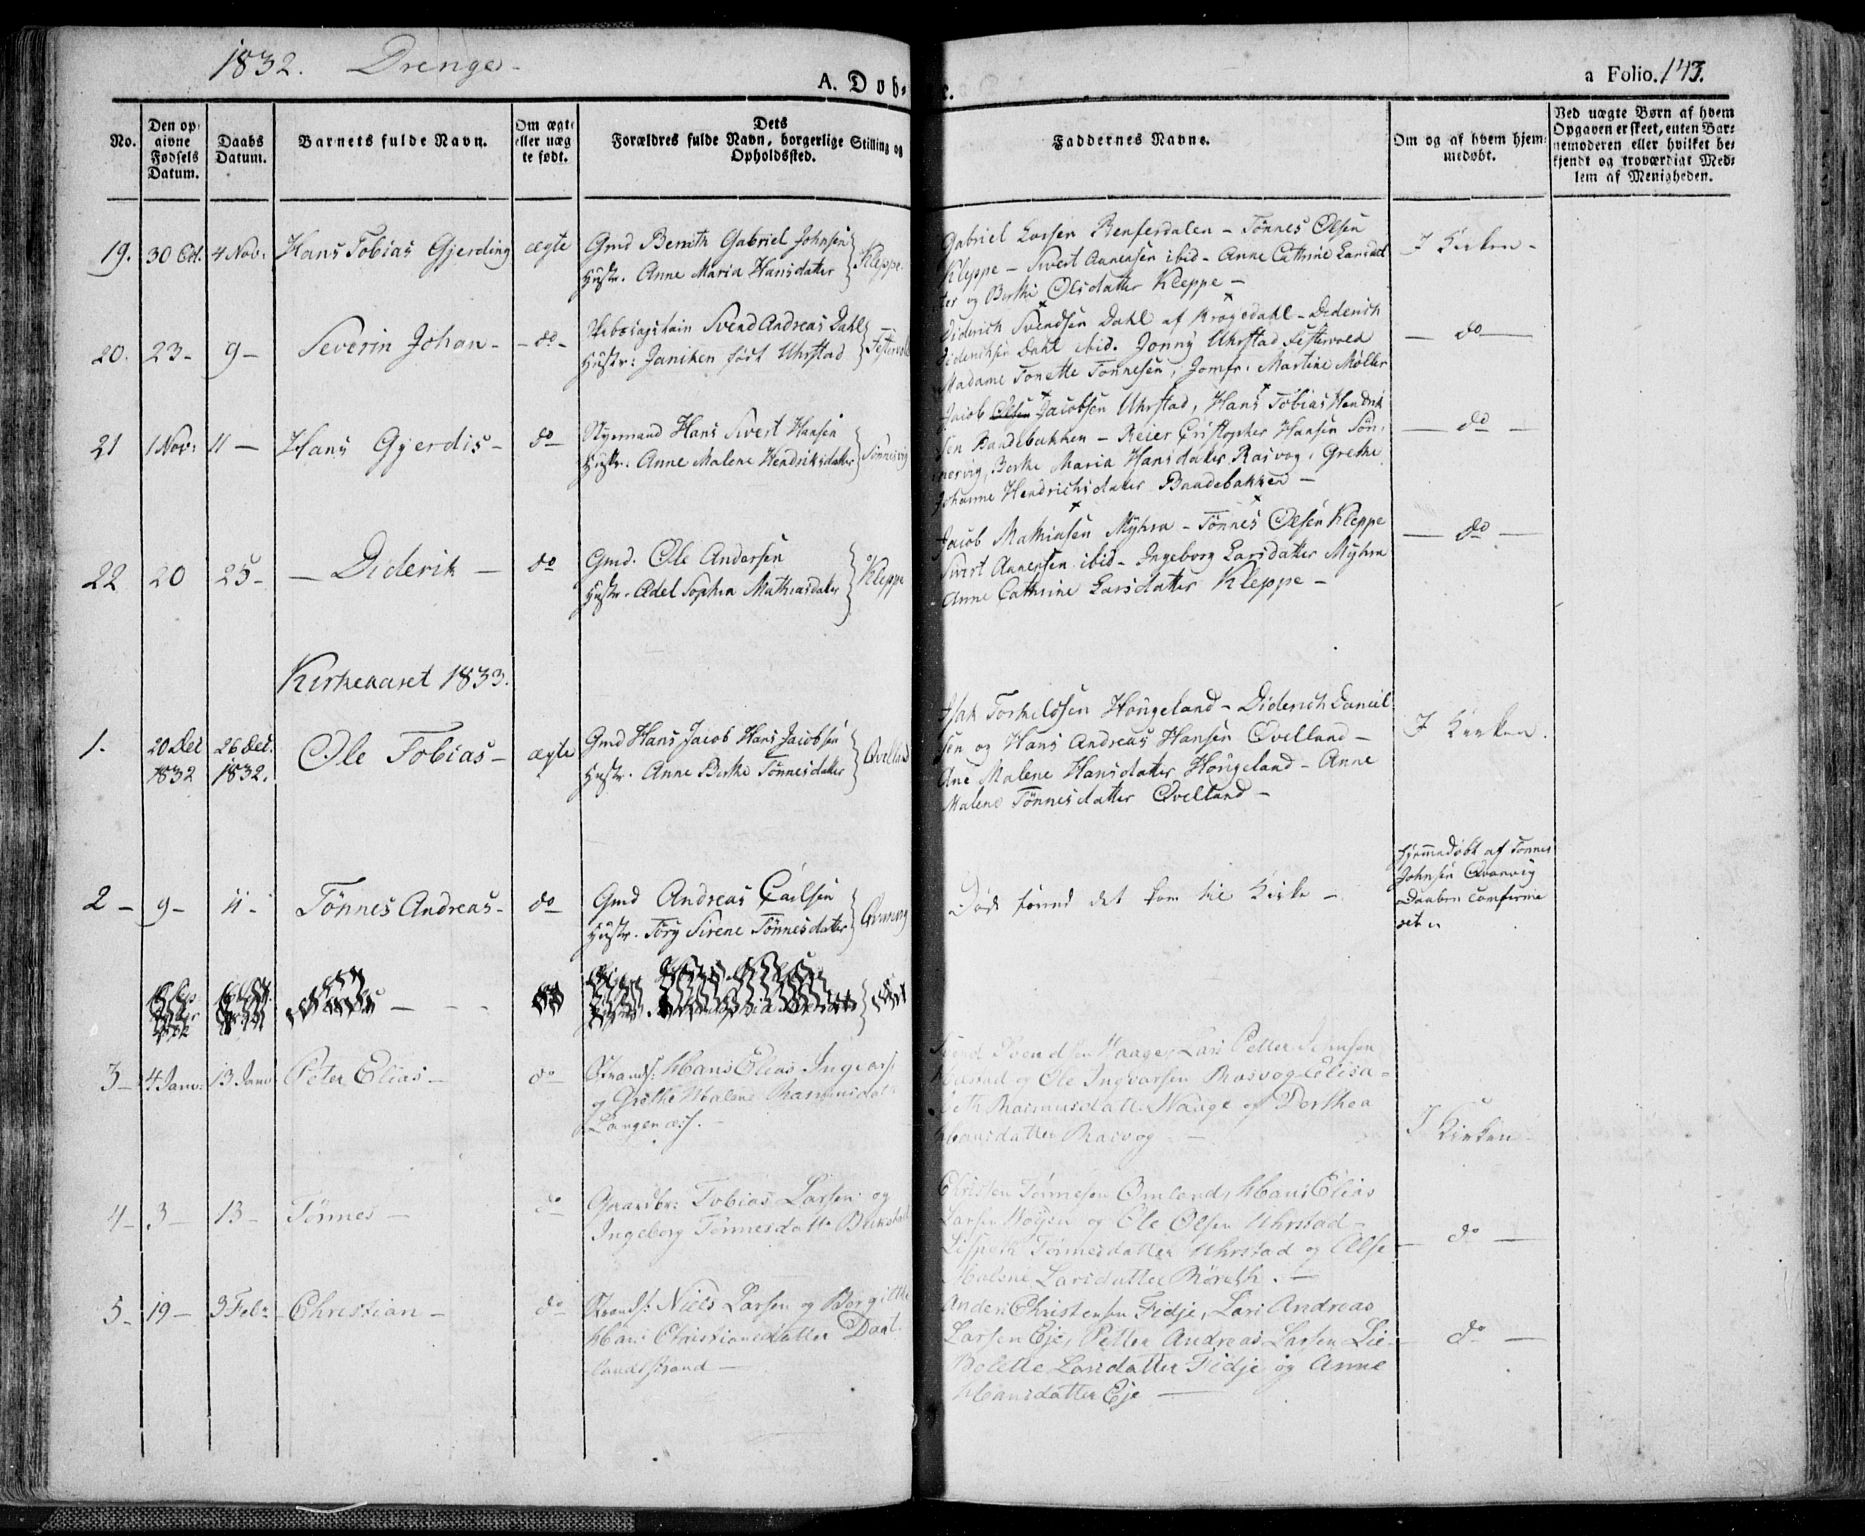 1832. Drenge-
A. Dob-
e.
a Folio. 143.
No.
Den op-
givne
Fødsels
Datum.
Daabs
Datum.
Barnets fulde Navn.
Om ægte
eller uæg
te født.
Dets
Forældres fulde Navn, borgerlige Stilling og
Opholdssted.
Faddernes Navne.
Om og af hvem hjem-
medøbt.
Ved uægte Børn af hvem
Opgaven er skeet, enten Bar-
nemoderen eller hvilket be-
kjendt og troværdigt Med-
lem af Menigheden.
19. 30 Oct. 4 Nov. Hans Tobias Gjerding ægte
Gmd Bernth Gabriel Johnsen
Hustr. Anne Maria Hansdatter
Kleppe
Gabriel Larsen - Tønnes Olsen
Kleppe - Sivert Annensen ibid - Anne Cathrine Larsdat
ter og Berthe Olsdatter Kleppe -
I Kirken -
20. 23- 9- Severin Johan- do-
Svend Andreas Dahl
Hustr: Janiken født Uhrstad
Diderich Svendsen Dahl af Krogedahl - Diderich
Diderichsen Dahl ibid. Jonny Uhrstad Festervold
Madame Tonette Tonnesen, Jomfr. Martine Møller
- do -
21 1 Nov: 11- Hans Gjerdis- do-
Styrmand Hans Sivert Hansen
Hustr. Anne Malene Hendriksdatter
Sønnervig
Jacob Olsen Jacobsen Uhrstad, Hans Tobias Hendrik
sen Baadebakken - Reier Cristopher Hansen Søn-
nervig, Berthe Maria Hansdatter Rasvog, Grethe
Johanne Hendrichsdatter Baadebakken -
- do -
22 20 25- - Diderik - do
Gmd. Ole Andersen
Hustr. Adel Sophia Mathiasdatter
Kleppe
Jacob Mathiasen Myhra - Tønnes Olsen Kleppe
Sivert Annensen ibid - Ingeborg Larsdatter Myhra
Anne Cathrine Larsdatter Kleppe -
- do -
Kirkeaaret 1833.
1. 20 Dec 1832 26 Dec. 1832. Ole Tobias- ægte
Gmd Hans Jacob Hans Jacobsen
Hustr. Anne Berthe Tønnesdatter
Qvelland
Isak Torkeldsen Hougeland - Diderich Daniel
sen og Hans Andreas Hansen Qvelland -
Ane Malene Hansdatter Hougeland - Anne
Malene Tönnesdatter Qvelland -
I Kirken.
2- 9- 11- Tønnes Andreas- do-
Gmd Andreas Carlsen
Hustr. Tørg Sirene Tønnesdatter
Død førend det kom til Kirke -
Hjemmedøbt af Tønnes
Johnsen Qvanvig
Daaben confirme
ret
3- 4 Janv: 13 Janv Peter Elias- do-
Strands: Hans Elias Ingvars:
Malene Rasmusdat
Langenæs. -
Svend Svendsen Haage, Lars Petter
og Ole Ingvarsen Rasvog, Elisa-
beth Rasmusdatter Haage og Dorthea
Hansdatter Rasvog -
I Kirken -
4- 3- 13- Tønnes- do
Gaardbr: Tobias Larsen og
Ingeborg Tønnesdattr
Christen Tønnesen Omland, Hans Elias
Larsen og Ole Olsen Uhrstad-
Lispeth Tønnesdatter Uhrstad og Else
Malene Larsdatter. -
- do -
5- 19- 3 Feb. Christian- do-
Strands: Niels Larsen og Bergitte
Christiansdatter Daat
landsstrand -
Anders Christensen Fidje, Lars Andreas
Larsen Eje, Petter Andreas Larsen Lie-
Bolette Larsdatter Fidje og Anne
Hansdatter Eje -
- do -